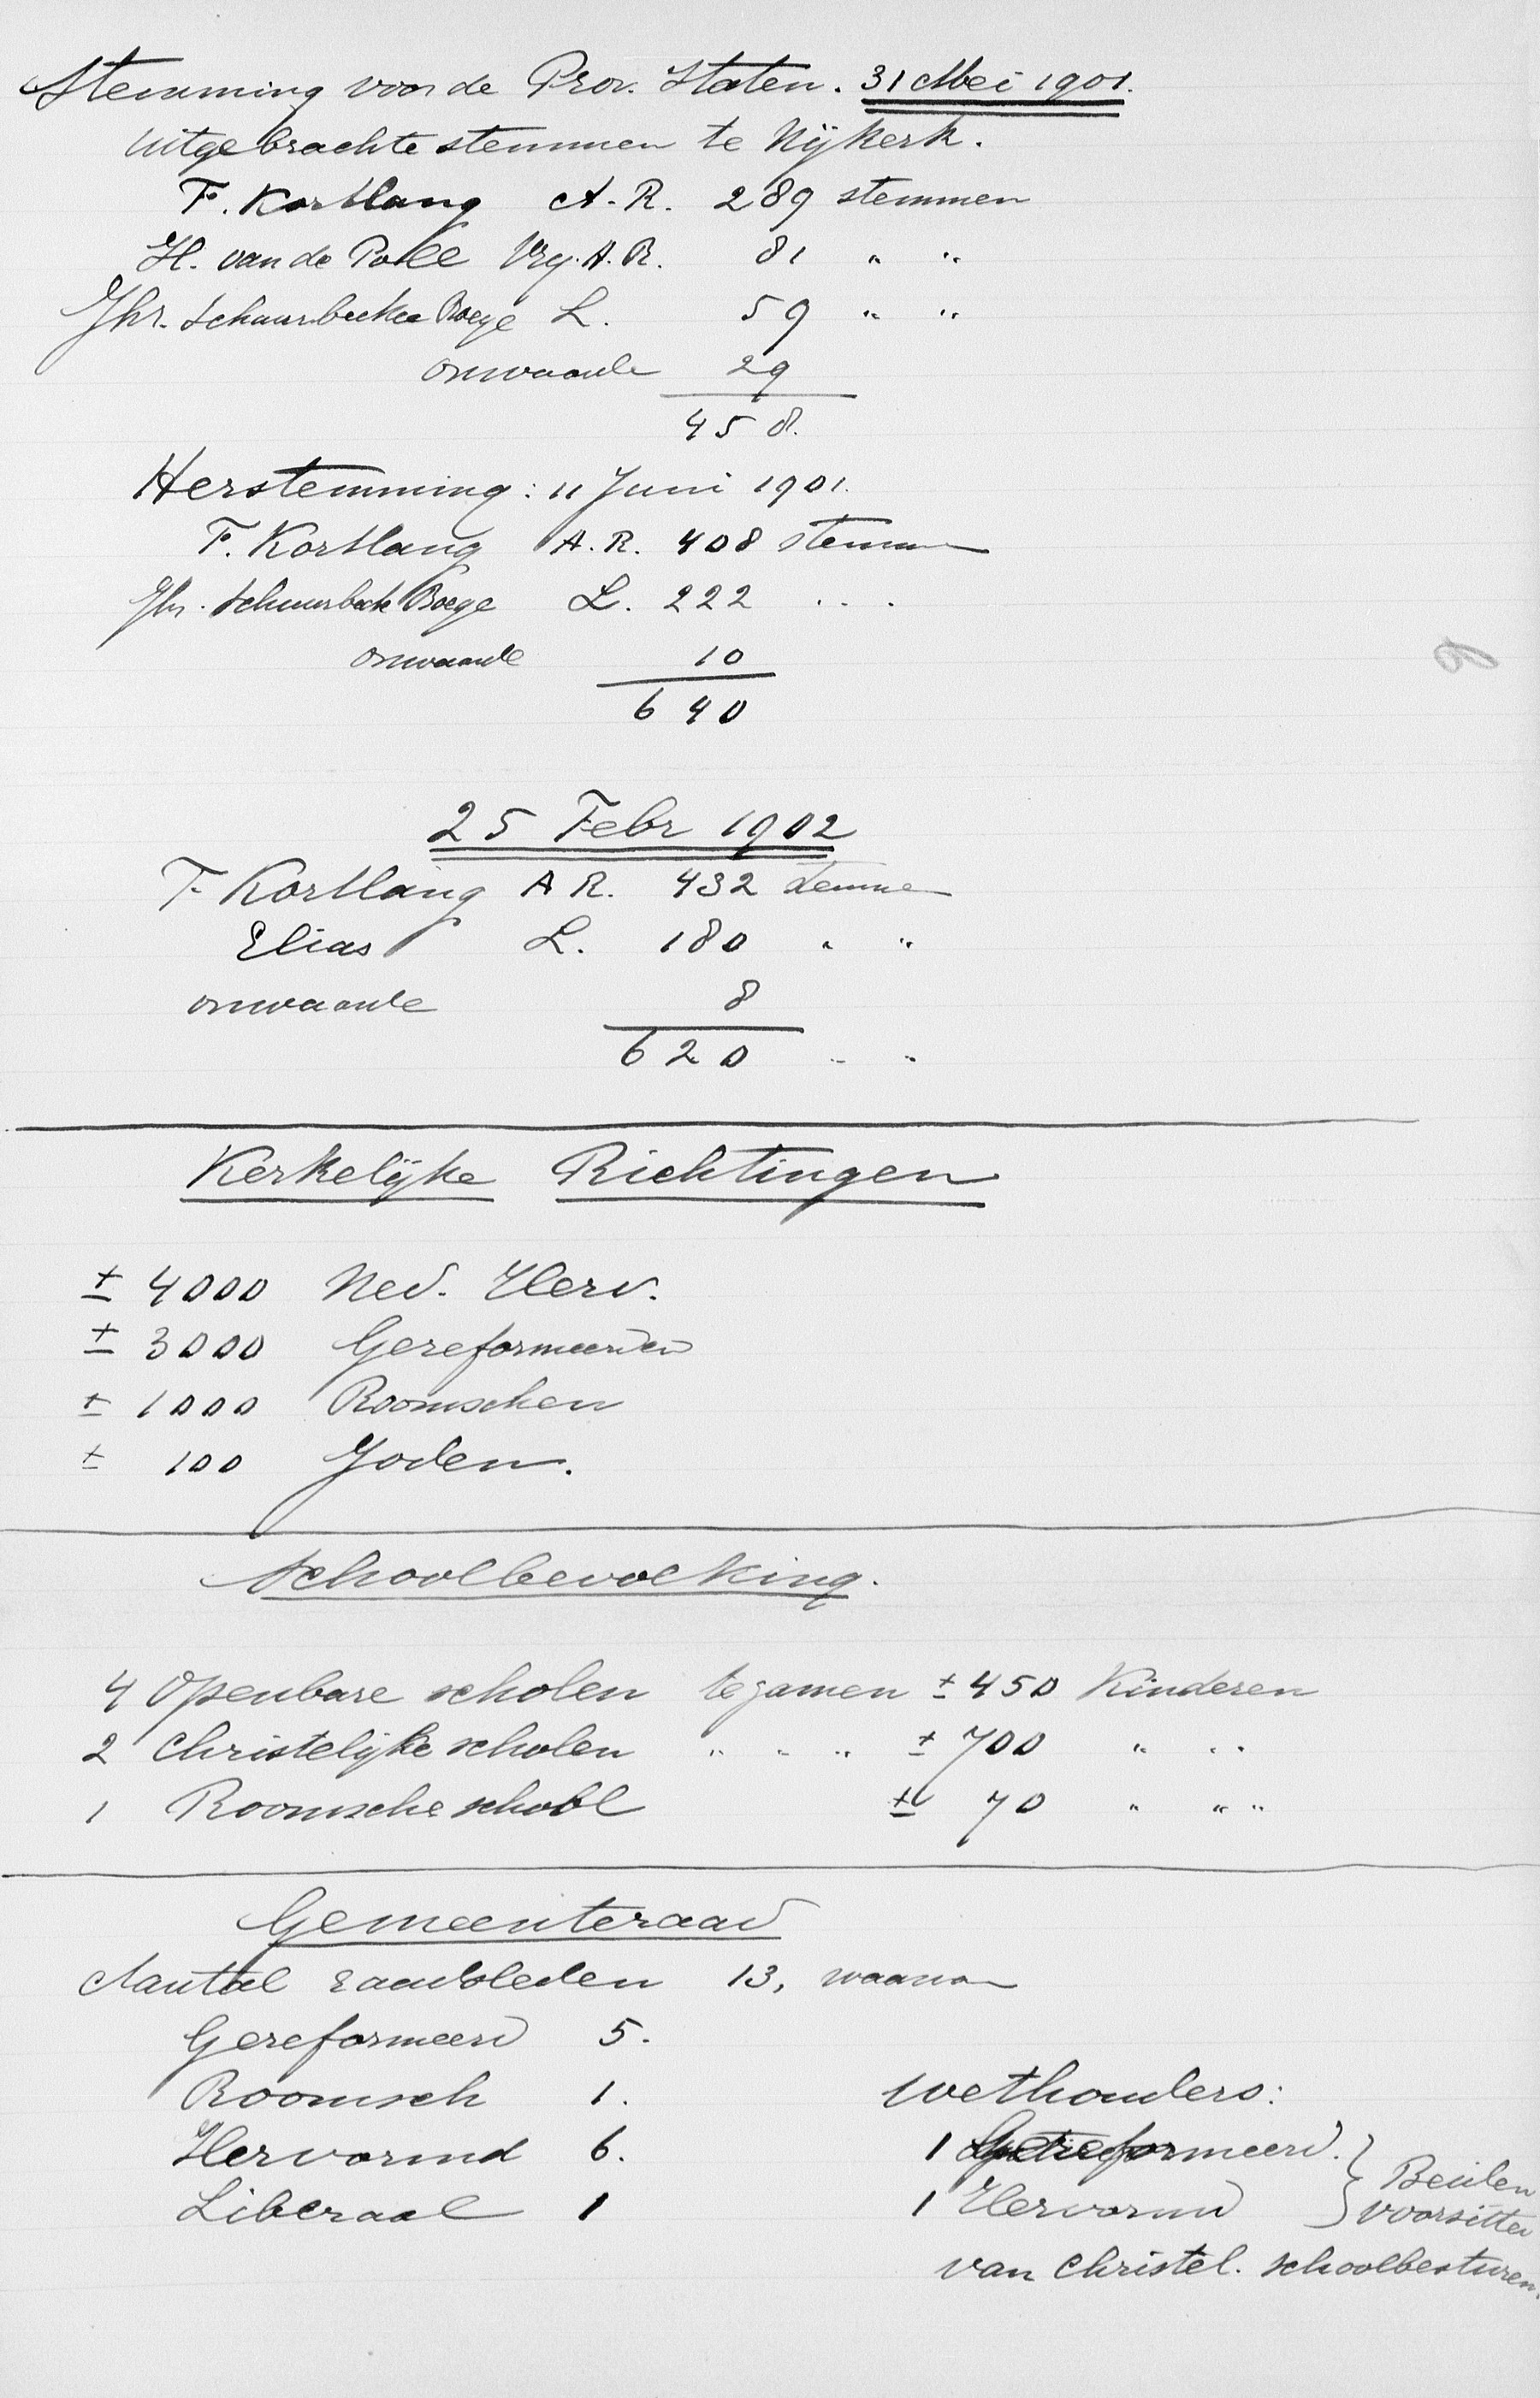 Stemming voor de Prov. Staten. 31 Mei 1901.
uitgebrachte stemmen te Nijkerk.
F. Kortlang A.R. 289 stemmen
H. van de Polle Vrij. A.R. 81 " "
Jhr. Schuurbeeke Boeye L. 59 " "
onwaarde 29
458.
Herstemming: 11 Juni 1901.
F. Kortlang A.R. 408 stemmen
Jhr. Schuurbeek Boeye L. 222 " "
onwaarde 10
640
25 Febr 1902
F. Kortlang A R. 432 stemmen
Elias L. 180 " "
onwaarde 8
620 " "
Kerkelijke Richtingen
± 4000 Ned. Herv.
± 3000 Gereformeerden
± 1000 Roomschen
± 100 Joden.
Schoolbevolking.
4 Openbare scholen tezamen ± 450 Kinderen
2 Christelijke scholen " " " ± 700 " "
1 Roomsche school ± 70 " " "
Gemeenteraad
Aantal raadsleden 13, waarvan
Gereformeerd 5.
Roomsch 1.
Hervormd 6.
Liberaal 1
Wethouders:
1 Gereformeerd.
1 Hervormd
Beiden
voorzitter
van Christel. schoolbesturen.